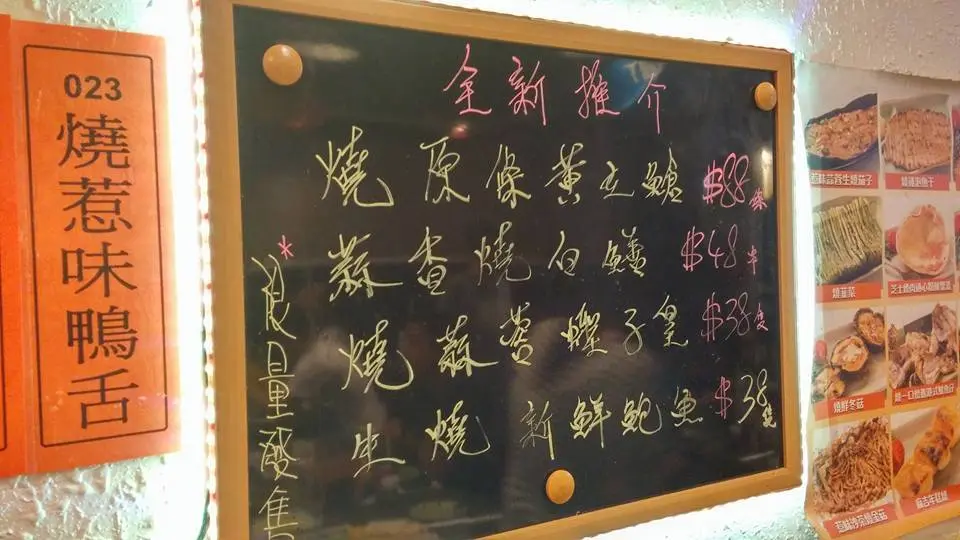 023
燒惹味鴨舌
全新推介
燒原條黃立鱠 $88條
蒜香燒白鱔 $48半
燒蒜蓉蟶子皇 $38度
生燒新鮮鮑魚 $38隻
*限量發售
惹味蒜蓉生燒茄子
燒韮菜
燒鮮冬菇
麻吉年糕燒